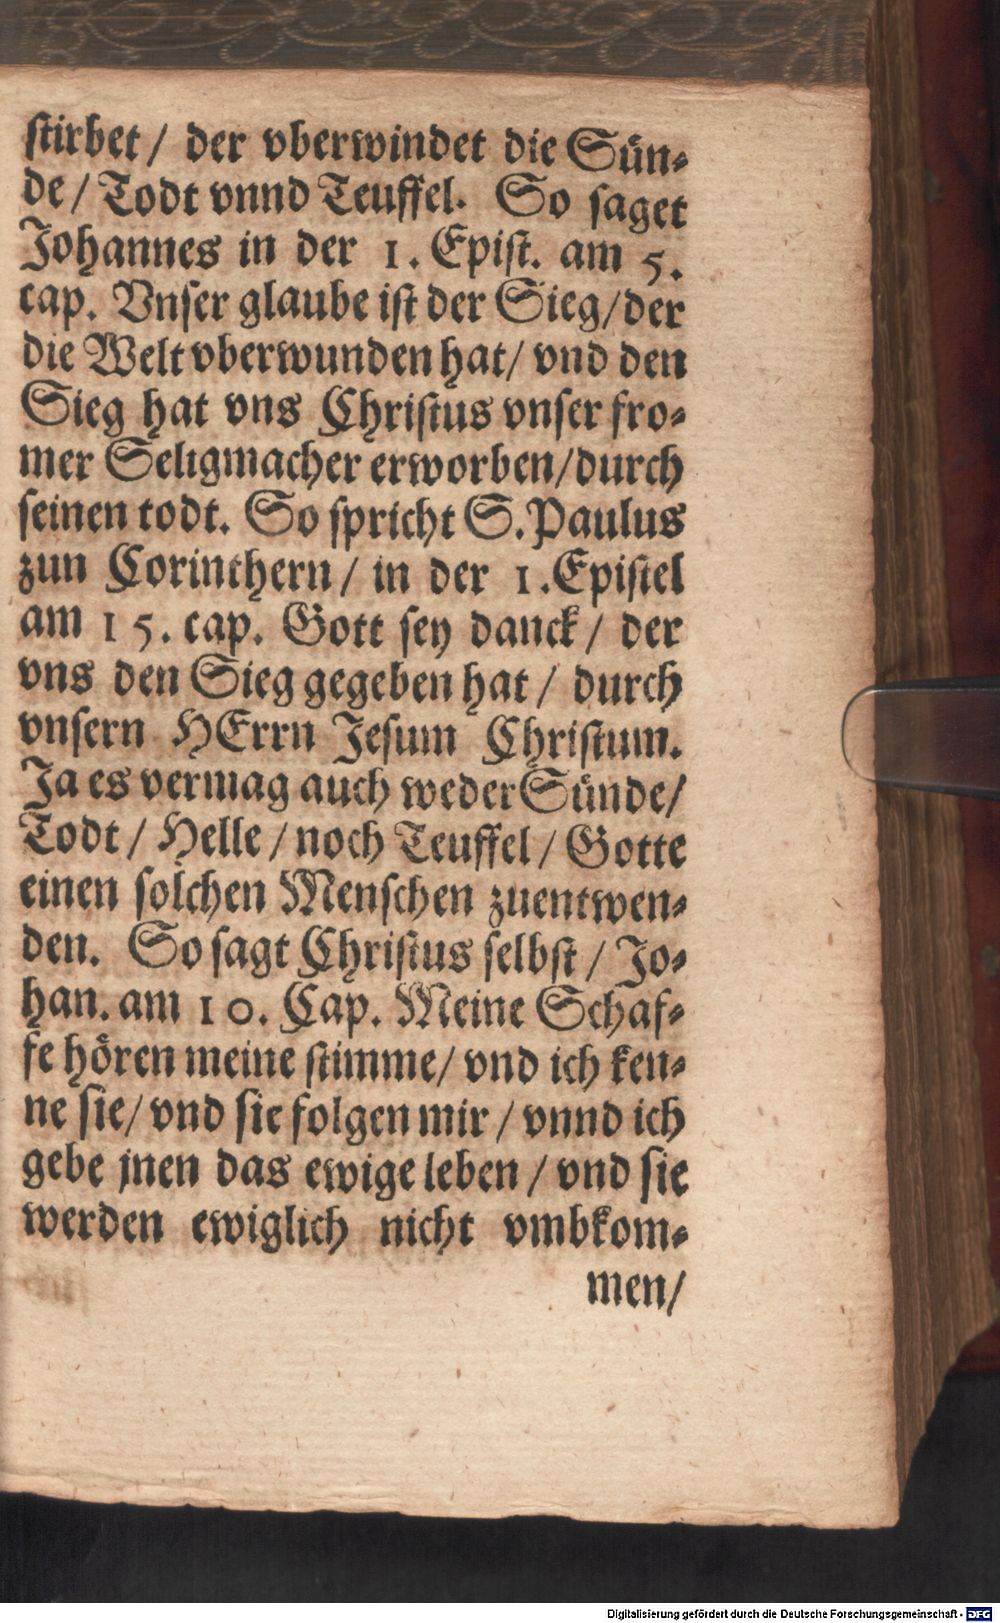 ſtirbet / der vberwindet die Sün⸗
de / Todt vnnd Teuffel. So ſaget
Johannes in der 1. Epiſt. am 5.
cap. Vnſer glaube iſt der Sieg / der
die Welt vberwunden hat / vnd den
Sieg hat vns Chriſtus vnſer fro⸗
mer Seligmacher erworben / durch
ſeinen todt. So ſpricht S. Paulus
zun Corinthern / in der 1. Epiſtel
am 15. cap. Gott ſey danck / der
vns den Sieg gegeben hat / durch
vnſern HErrn Jeſum Chriſtum.
Ja es vermag auch weder Sünde /
Todt / Helle / noch Teuffel / Gotte
einen ſolchen Menſchen zuentwen⸗
den. So ſagt Chriſtus ſelbſt / Jo⸗
han. am 10. Cap. Meine Schaf⸗
fe hören meine ſtimme / vnd ich ken⸗
ne ſie / vnd ſie folgen mir / vnnd ich
gebe jnen das ewige leben / vnd ſie
werden ewiglich nicht vmbkom⸗
men /
Digitalisierung gefördert durch die Deutsche Forschungsgemeinschaft - DFG